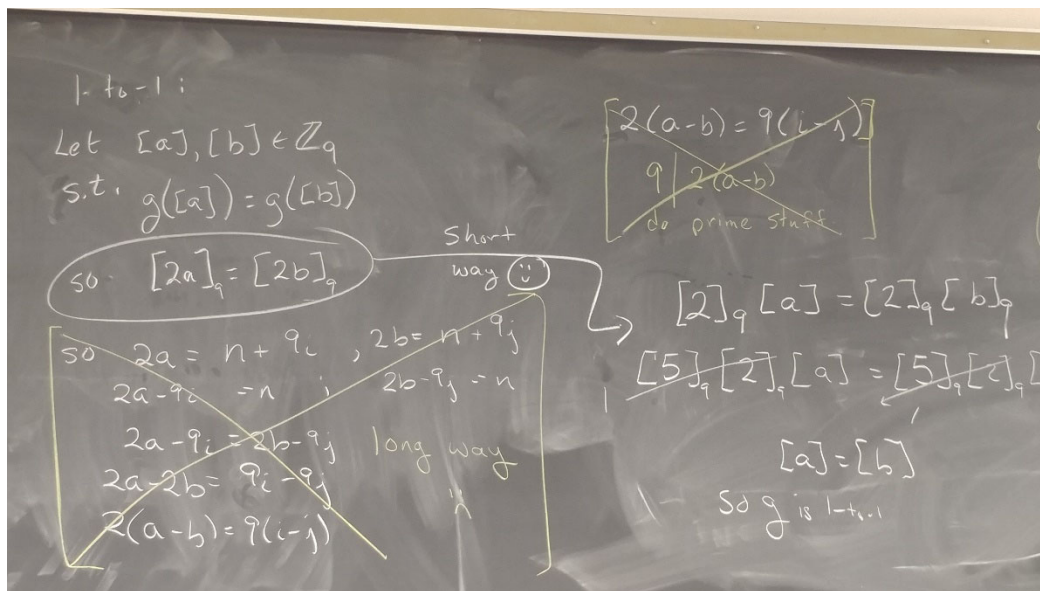 1-to-1:
Let [a], [b] ∈ ℤ₉
s.t. g([a]) = g([b])
so [2a]₉ = [2b]₉
short
way
so 2a = n + 9i , 2b = n + 9j
2a-9i = n ; 2b-9j = n
2a-9i = 2b-9j
2a-2b = 9i-9j
2(a-b) = 9(i-j)
long way
2(a-b) = 9(i-j)
9 | 2(a-b)
do prime stuff
[2]₉[a] = [2]₉[b]₉
[5]₉[2]₉[a] = [5]₉[2]₉[
[a] = [b]
So g is 1-to-1